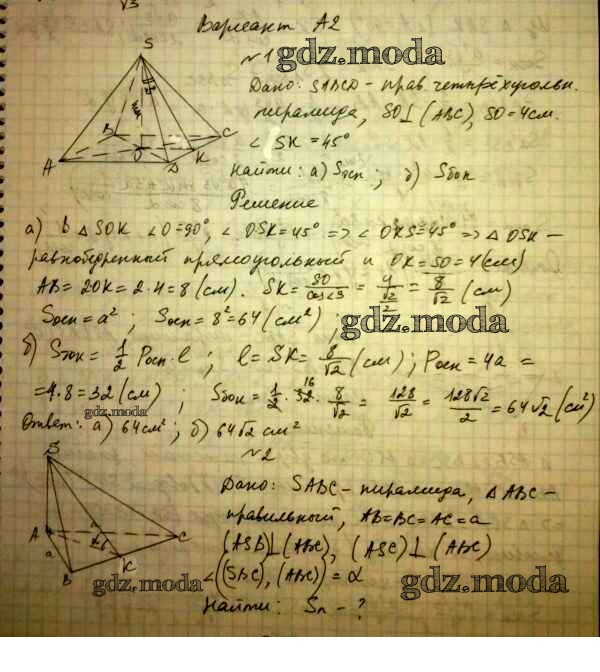 √3
Вариант А2
gdz.moda
№1
Дано: SABCD – прав четырёхугольн.
пирамида, SO⊥(ABC), SO=4см.
∠ SK = 45°
Найти: а) Sосн; б) Sбок
Решение
S
B
C
A
O
K
D
а) в △SOK ∠O=90°, ∠OSK=45° => ∠OKS=45° => △OSK –
равнобедренный прямоугольный и OK=SO=4(см)
AB=2OK=2·4=8(см). SK= SO/cos∠S = 4/(√2/2) = 8/√2 (см)
Sосн=a²; Sосн=8²=64(см²);
gdz.moda
б) Sбок = 1/2 Pосн·l; l=SK= 8/√2 (см); Pосн=4a=
=4·8=32(см); Sбок= 1/2·32·8/√2 = 128/√2 = 128√2/2 = 64√2(см²)
16
Ответ: а) 64см²; б) 64√2 см²
gdz.moda
№2
Дано: SABC – пирамида, △ABC –
правильный, AB=BC=AC=a
(ASB)⊥(ABC), (ASC)⊥(ABC)
∠((SBC),(ABC))=α
Найти: Sп – ?
S
A
a
B
K
C
gdz.moda
gdz.moda